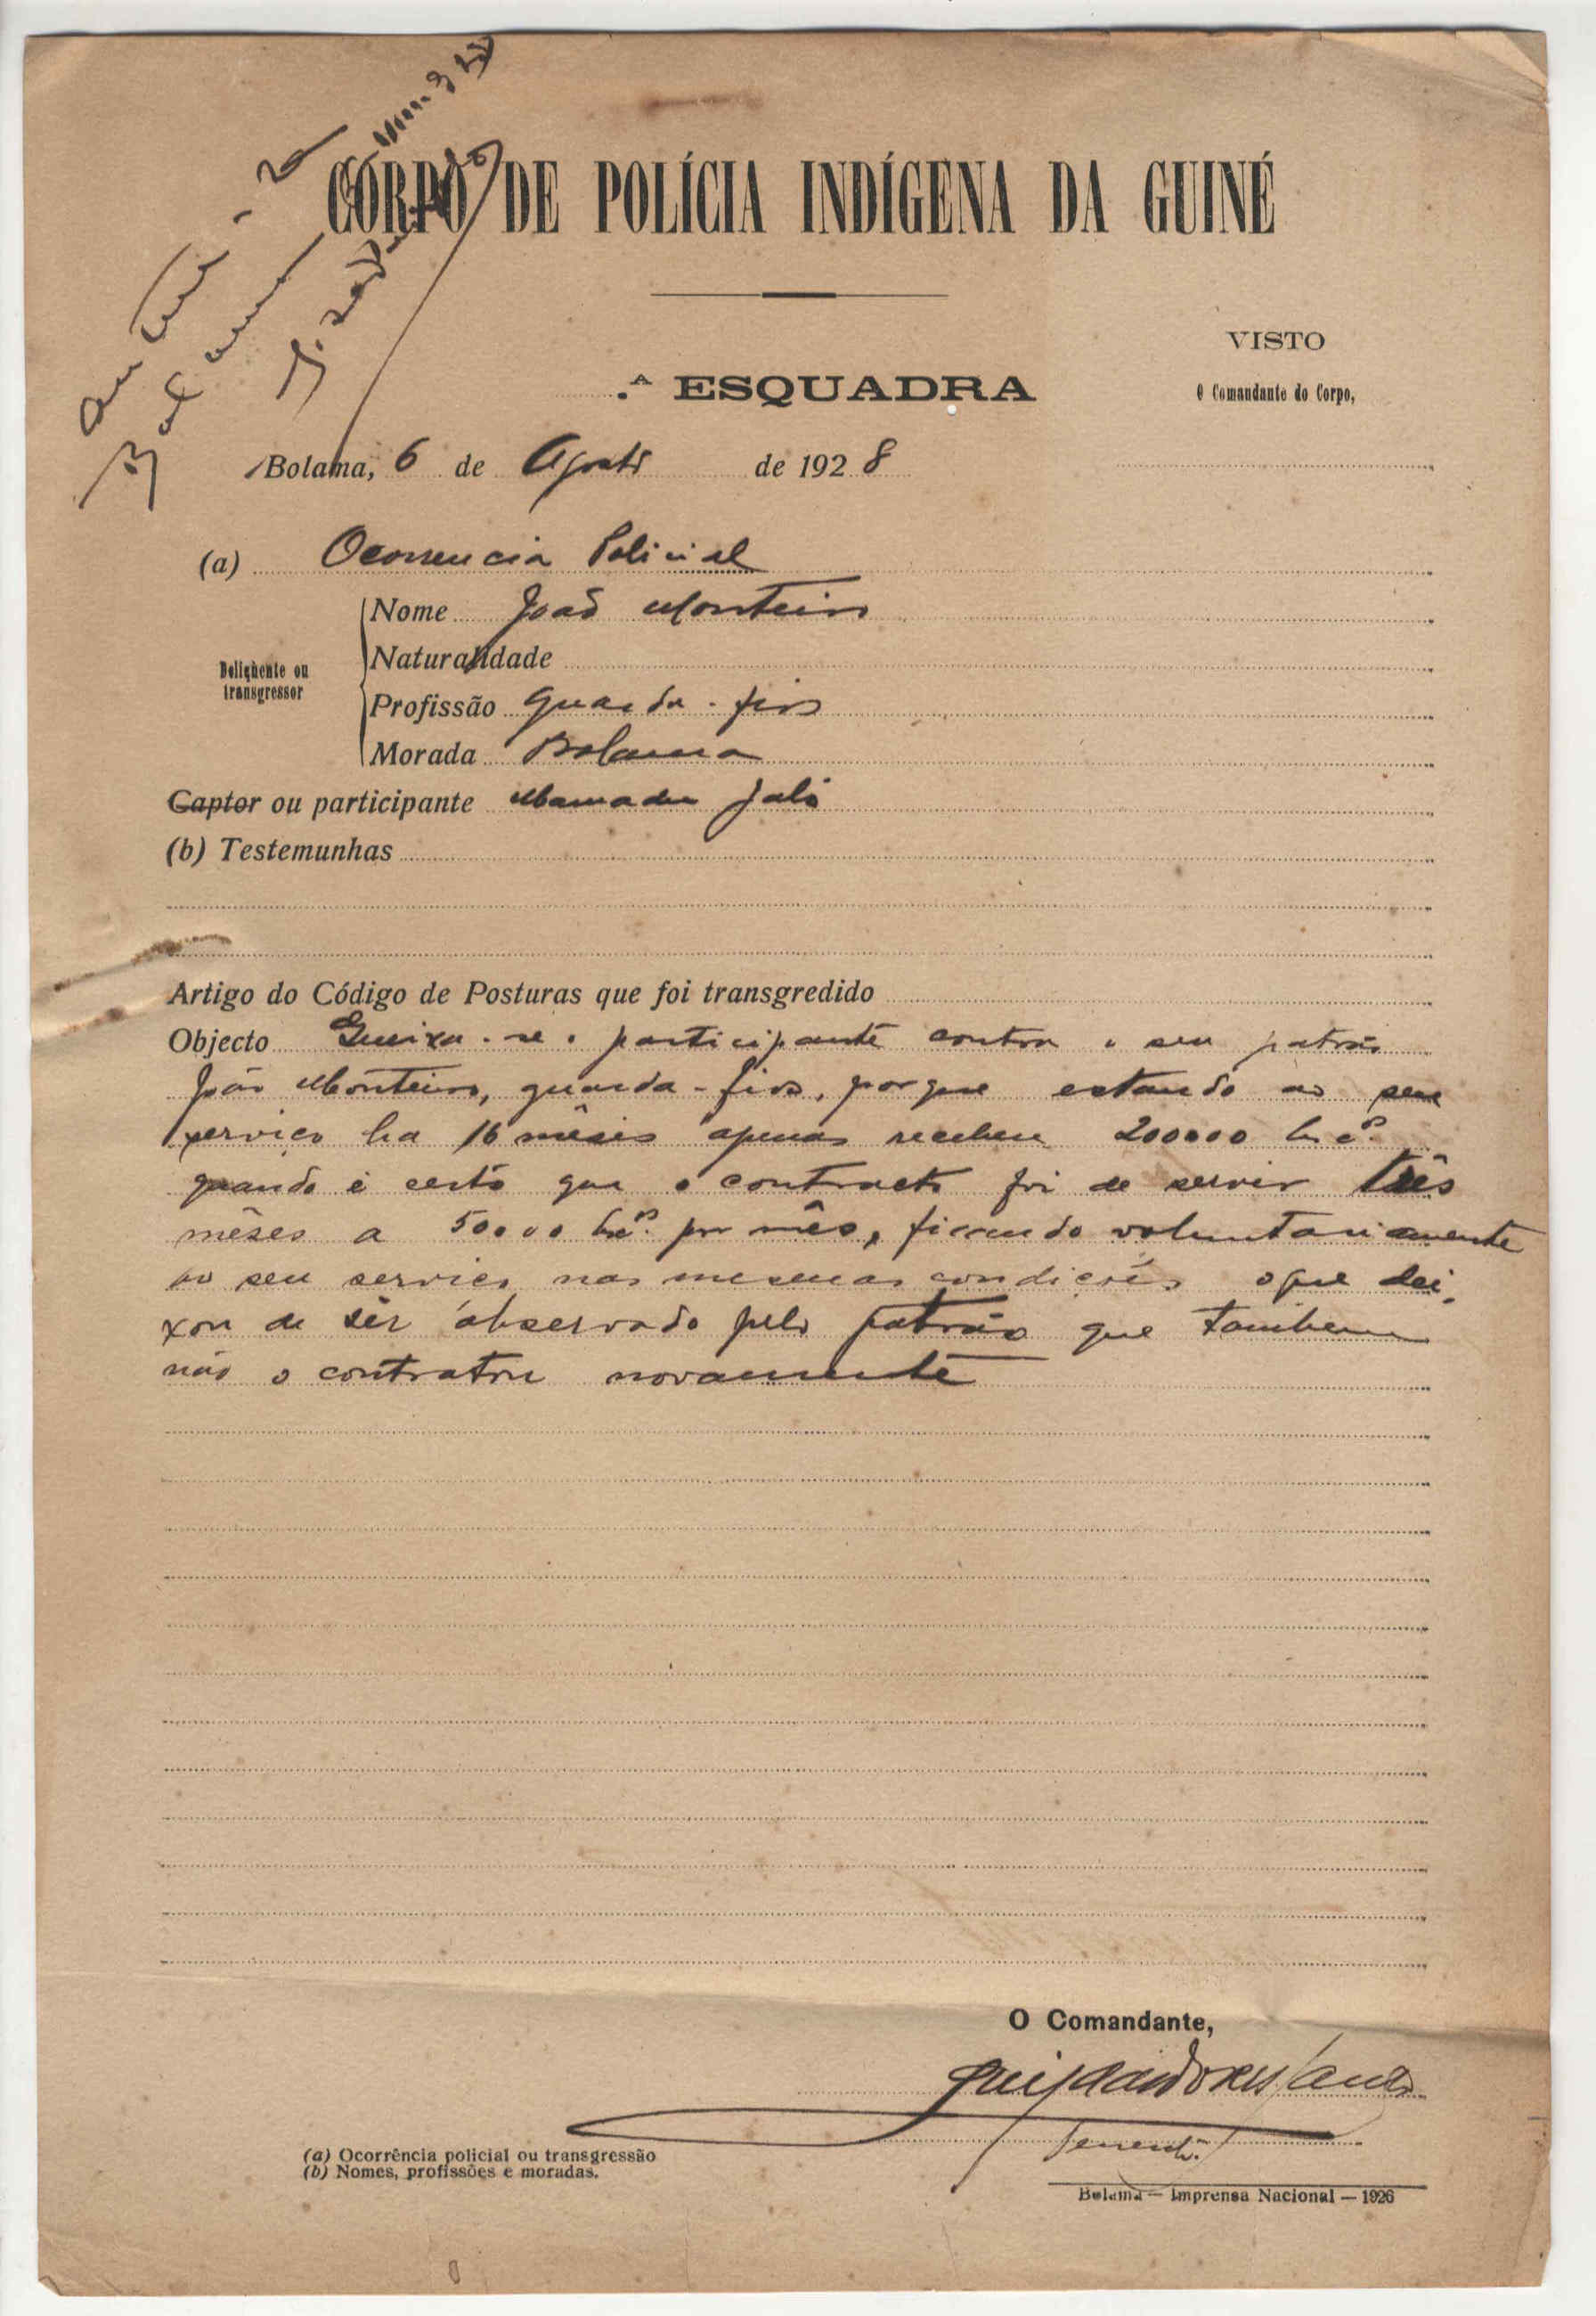 CORPO DE POLÍCIA INDÍGENA DA GUINÉ
VISTO
O Comandante do Corpo,
.ᴬ ESQUADRA
Bolama, 6 de Agosto de 1928
(a) Ocorrencia Policial
Delinquente ou transgressor
Nome João Monteiro
Naturalidade
Profissão guarda-fios
Morada Bolama
Captor ou participante Mamadu Jaló
(b) Testemunhas
Artigo do Código de Posturas que foi transgredido
Objecto Queixa-se o participante contra o seu patrão
João Monteiro, guarda-fios, porque estando ao seu
serviço ha 16 mêses apenas recebeu 200$00
quando é certo que o contracto foi de servir três
mêses a 50$00 por mês, ficando voluntariamente
ao seu serviço nas mesmas condições o que dei-
xou de sêr observado pelo patrão que tambem
não o contratou novamente
O Comandante,
Tenente
(a) Ocorrência policial ou transgressão
(b) Nomes, profissões e moradas.
Bolama — Imprensa Nacional — 1926